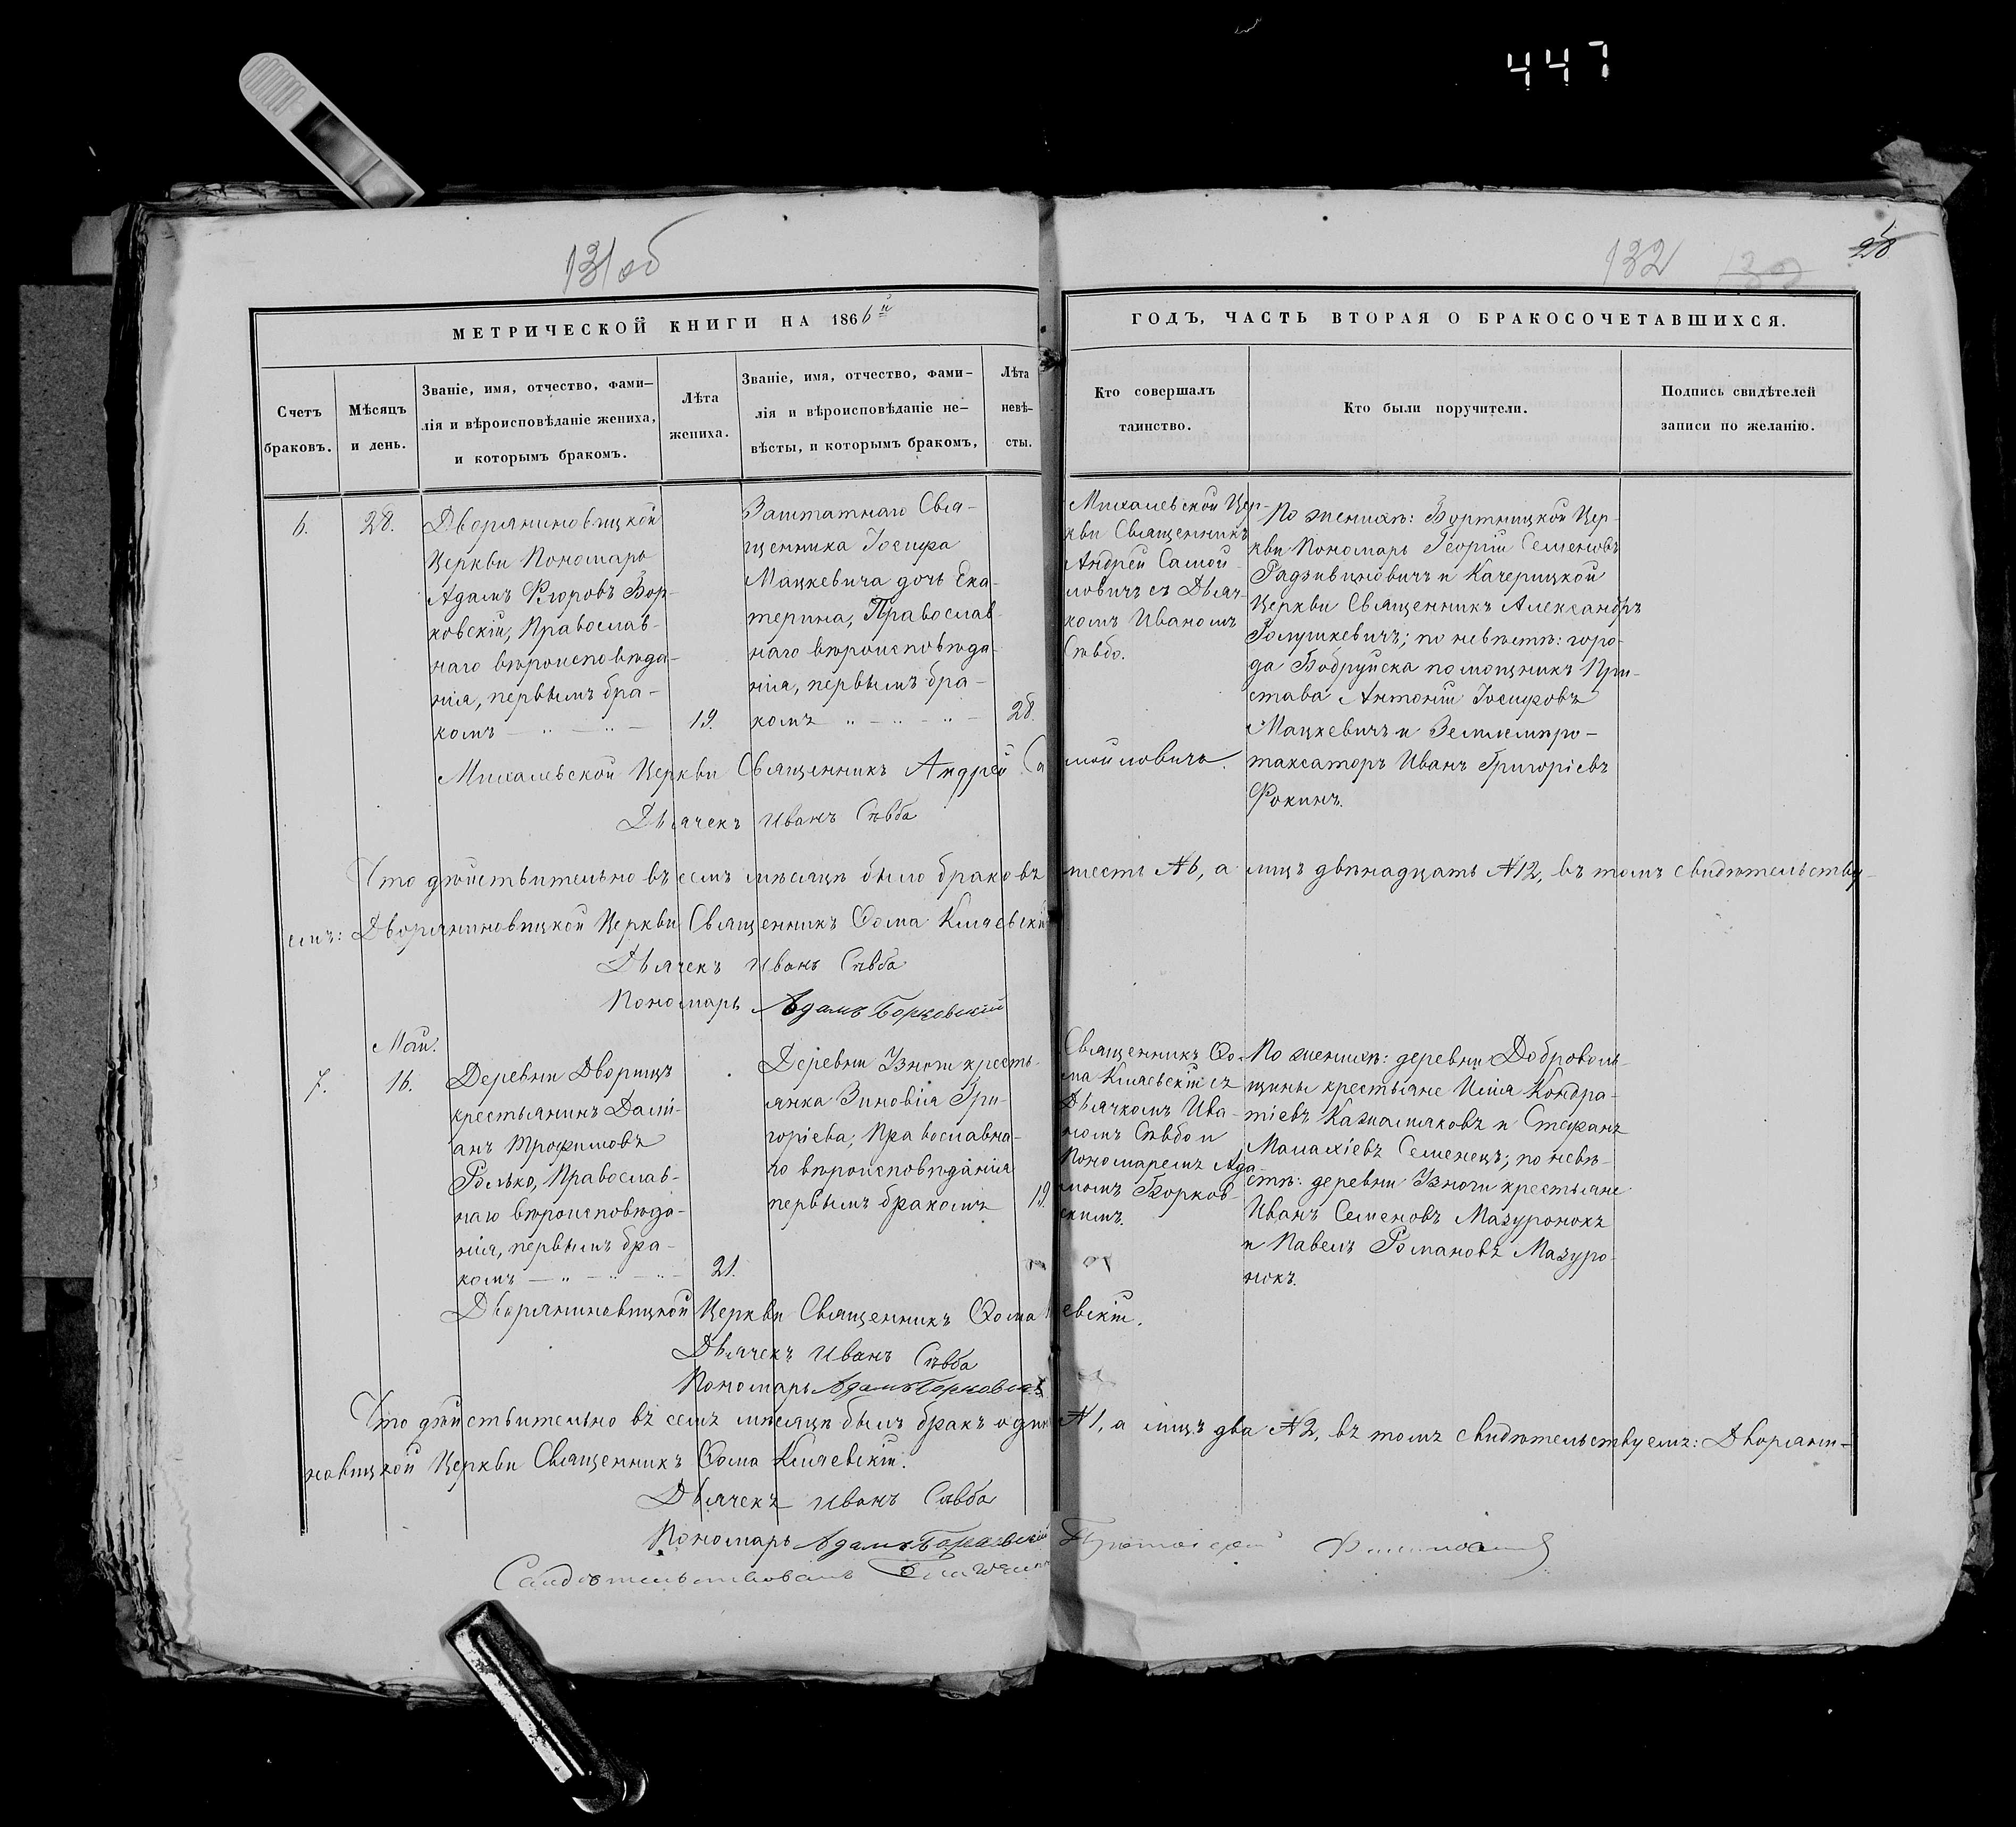 447
131об
132
28
МЕТРИЧЕСКОЙ КНИГИ НА 1866й
ГОДЪ, ЧАСТЬ ВТОРАЯ О БРАКОСОЧЕТАВШИХСЯ.
Счетъ
браковъ.
Мѣсяцъ
и день.
Званіе, имя, отчество, фами-
лія и вѣроисповѣданіе жениха,
и которымъ бракомъ.
Лѣта
жениха.
Званіе, имя, отчество, фами-
лія и вѣроисповѣданіе не-
вѣсты, и которымъ бракомъ,
Лѣта
невѣ-
сты.
Кто совершалъ
таинство.
Кто были поручители.
Подпись свидѣтелей
записи по желанію.
6.
28.
Дворяниновицкой
Церкви Пономарь
Адамъ Егоровъ Бор-
ковскій, Православ-
наго вѣроисповѣда-
нія, первымъ бра-
комъ
19.
Заштатнаго Свя-
щенника Іосифа
Мацкевича дочь Ека-
терина, Православ-
наго вѣроисповѣда-
нія, первымъ бра-
комъ
28.
Михалевской Цер-
кви Священникъ
Андрей Самой-
ловичъ съ Дьяч-
комъ Иваномъ
Сѣвбо.
По женихѣ: Бортницкой Цер-
кви Пономарь Георгій Семеновъ
Радзивиновичъ и Качерицкой
Церкви Священникъ Александръ
Голушкевичъ; по невѣстѣ: горо-
да Бобруйска помощникъ При-
става Антоній Іосифовъ
Мацкевичъ и Землемѣро-
таксаторъ Иванъ Григоріевъ
Фокинъ.
Михалевской Церкви Священникъ Андрей Самойловичъ.
Дьячекъ Иванъ Сѣвба
Что дѣйствительно въ семъ мѣсяцѣ было браковъ шесть №6, а лицъ двѣнадцать №12, въ томъ свидѣтельству-
емъ: Дворяниновицкой Церкви Священникъ Ѳома Кмачевскій
Дьячекъ Иванъ Сѣвба
Пономарь Адамъ Борковскій
7.
Май.
16.
Деревни Дворищъ
крестьянинъ Дамі-
анъ Трофимовъ
Ролько, Православ-
наго вѣроисповѣда-
нія, первымъ бра-
комъ
21.
Деревни Узноги кресть-
янка Зиновія Гри-
горіева, Православна-
го вѣроисповѣданія
первымъ бракомъ
19.
Священникъ Ѳо-
ма съ
Дьячкомъ Ива-
номъ Сѣвбо и
Пономаремъ Ада-
момъ Борков-
скимъ.
По женихѣ: деревни Доброволь-
щины крестьяне Илія Кондра-
тіевъ и Стефанъ
Малахіевъ Семенецъ; по невѣ-
стѣ: деревни Узноги крестьяне
Иванъ Семеновъ Мазуронокъ
и Павелъ Романовъ Мазуро-
нокъ.
Дворяниновицкой Церкви Священникъ Ѳома евскій.
Дьячекъ Иванъ Сѣвба
Пономарь Адамъ Борковскій
Что дѣйствительно въ семъ мѣсяцѣ былъ бракъ одинъ №1, а лицъ два №2, въ томъ свидѣтельствуемъ: Дворяни-
новицкой Церкви Священникъ Ѳома
Дьячекъ Иванъ Сѣвба
Пономарь Адамъ Борковскій
Свидѣтельствовалъ Благочинный Протоіерей